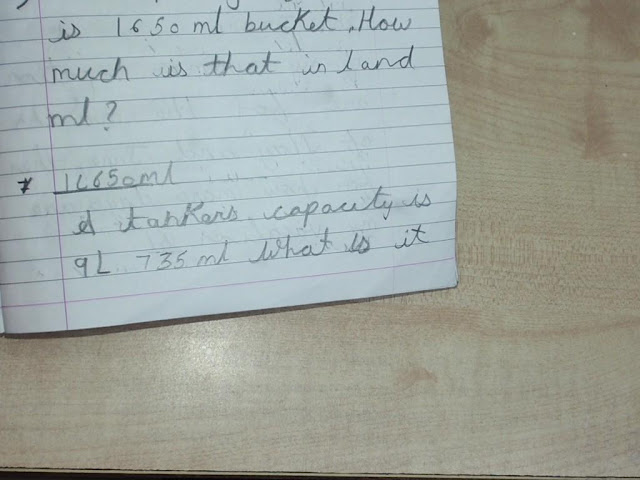 is 1650 ml bucket. How
much is that in L and
ml?
* 1L650ml
A tankers capacity is
9L 735 ml What is it